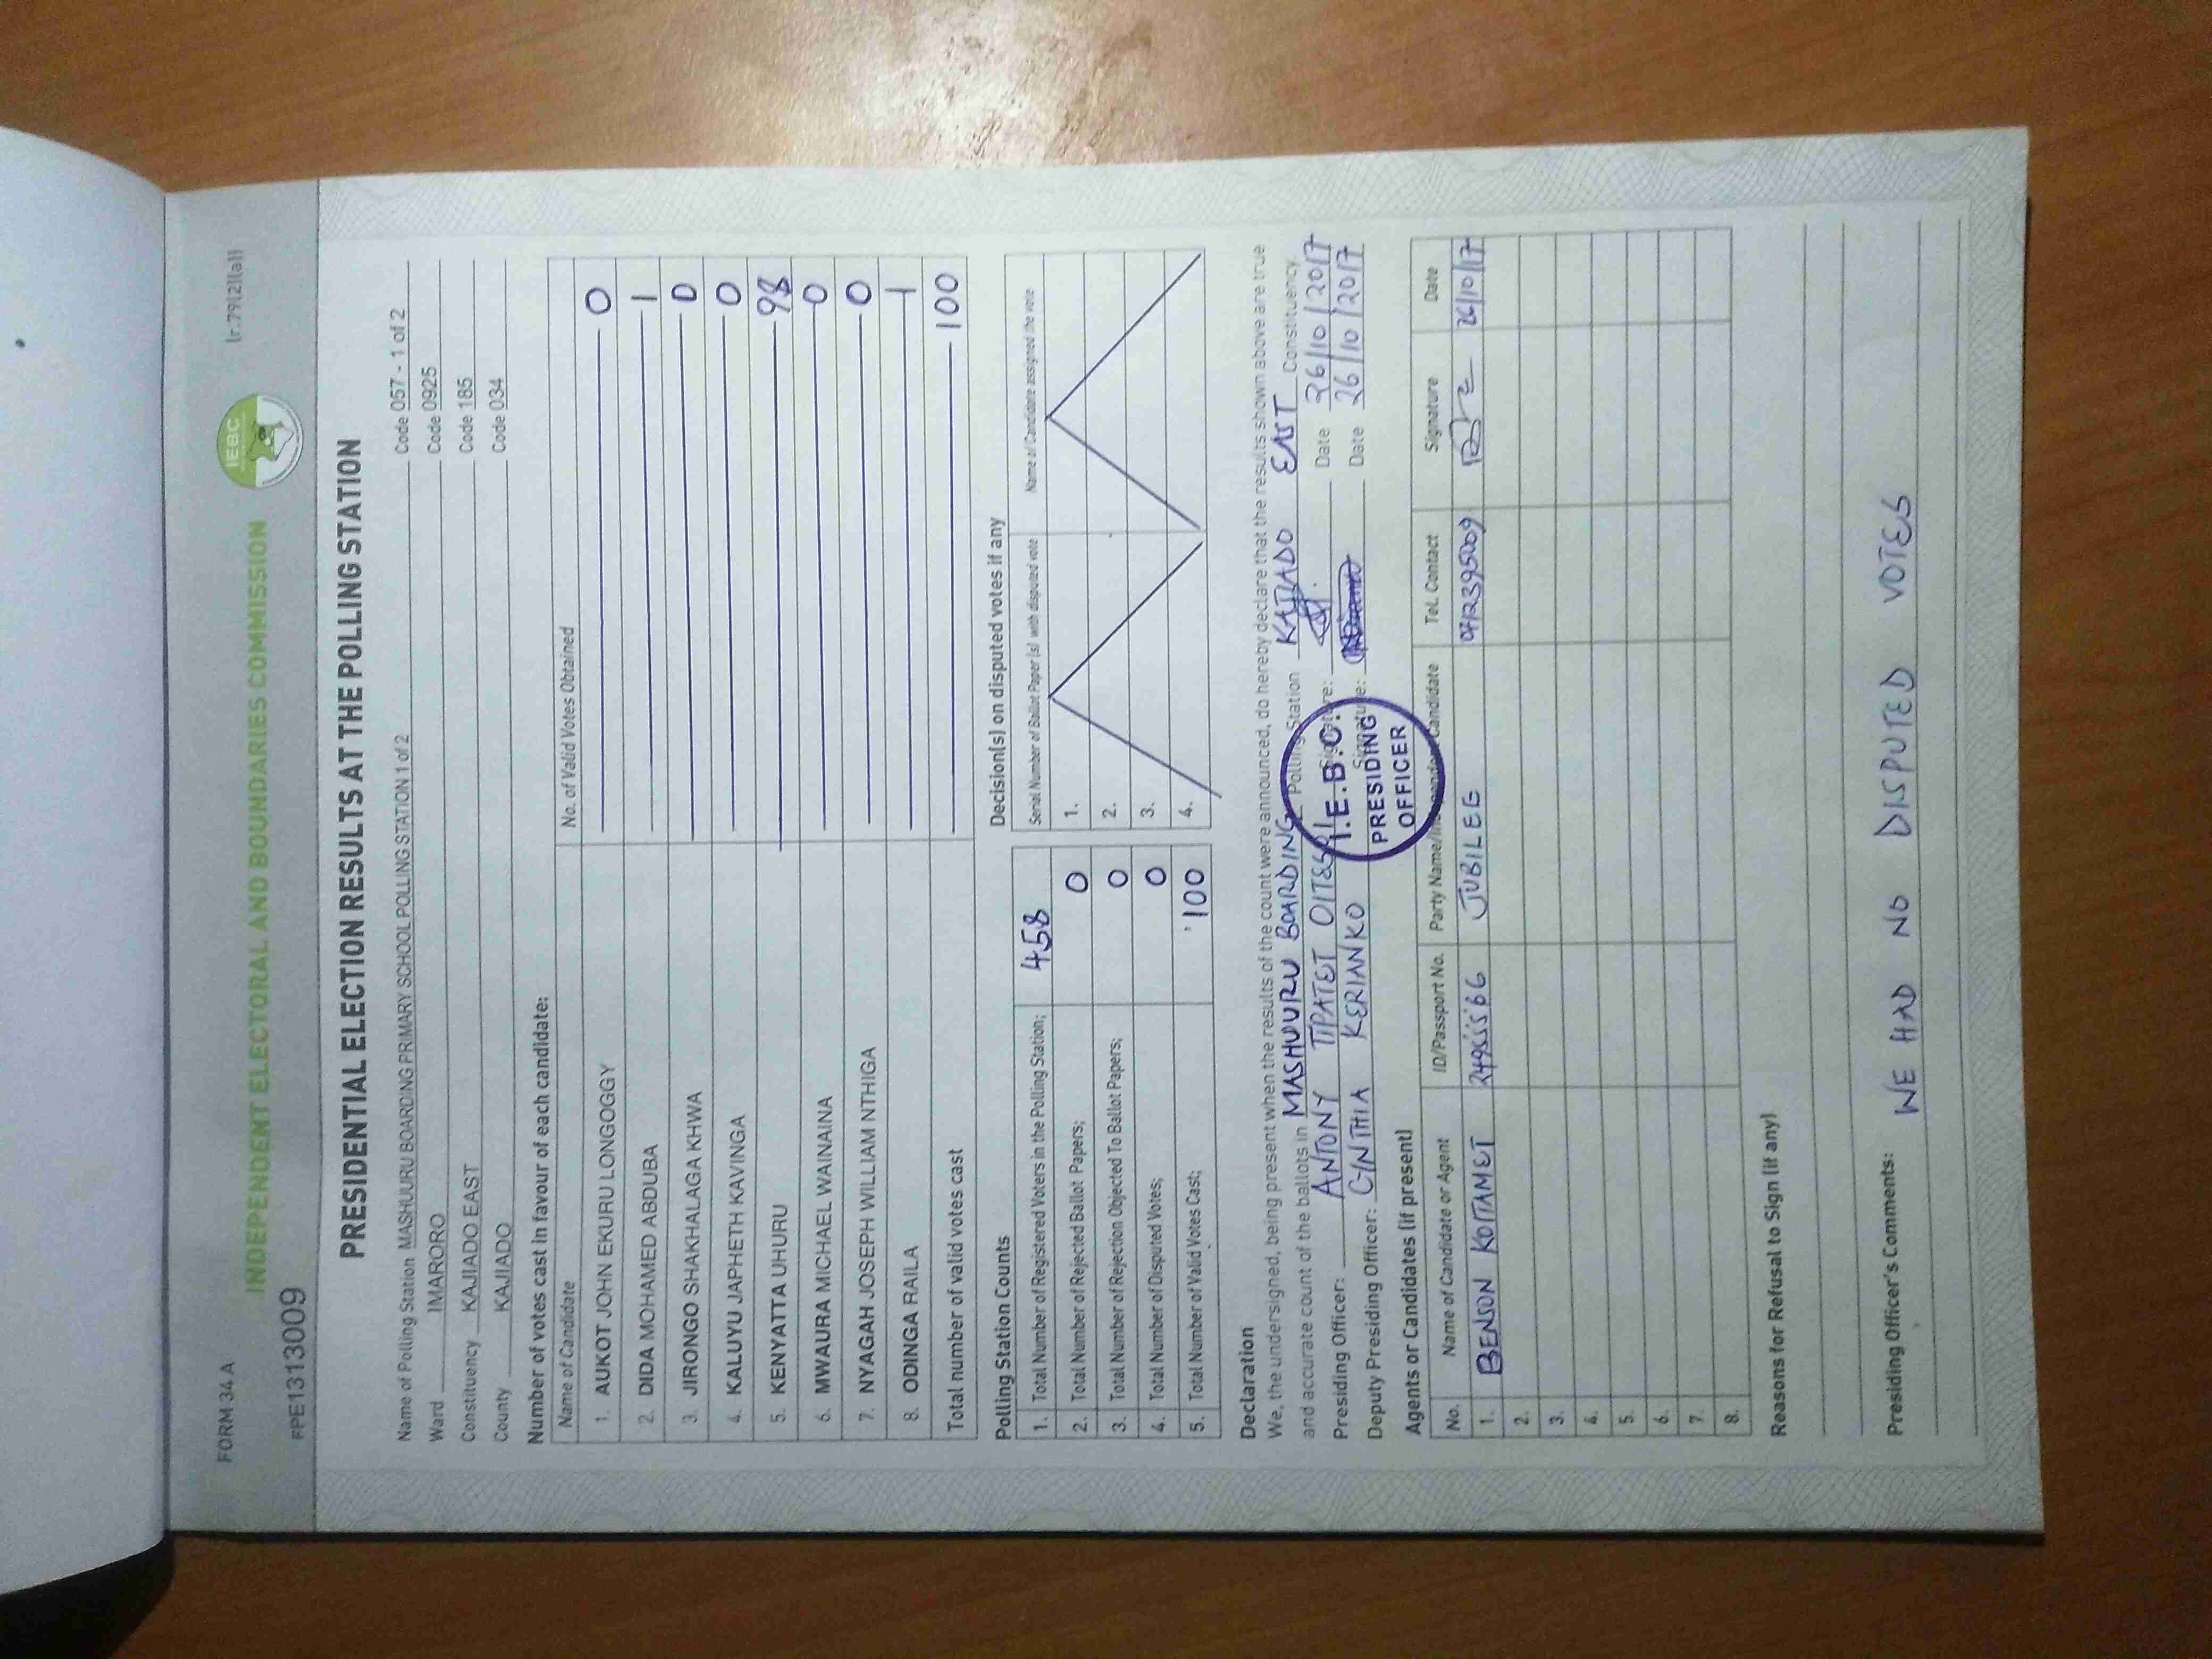 FORM 34 A
(r.79(2)(a))
FPE1313009
INDEPENDENT ELECTORAL AND BOUNDARIES COMMISSION
IEBC
PRESIDENTIAL ELECTION RESULTS AT THE POLLING STATION
Name of Polling Station MASHUURU BOARDING PRIMARY SCHOOL POLLING STATION 1 of 2 Code 057 - 1 of 2
Ward IMARORO Code 0925
Constituency KAJIADO EAST Code 185
County KAJIADO Code 034
Number of votes cast in favour of each candidate:
Name of Candidate No. of Valid Votes Obtained
1. AUKOT JOHN EKURU LONGOGGY 0
2. DIDA MOHAMED ABDUBA 1
3. JIRONGO SHAKHALAGA KHWA 0
4. KALUYU JAPHETH KAVINGA 0
5. KENYATTA UHURU 98
6. MWAURA MICHAEL WAINAINA 0
7. NYAGAH JOSEPH WILLIAM NTHIGA 0
8. ODINGA RAILA 1
Total number of valid votes cast 100
Polling Station Counts
1. Total Number of Registered Voters in the Polling Station; 458
2. Total Number of Rejected Ballot Papers; 0
3. Total Number of Rejection Objected To Ballot Papers; 0
4. Total Number of Disputed Votes; 0
5. Total Number of Valid Votes Cast; 100
Decision(s) on disputed votes if any
Serial Number of Ballot Paper (s) with disputed vote Name of Candidate assigned the vote
1.
2.
3.
4.
Declaration
We, the undersigned, being present when the results of the count were announced, do hereby declare that the results shown above are true
and accurate count of the ballots in MASHUURU BOARDING Polling Station KAJIADO EAST Constituency
Presiding Officer: ANTONY TIPATET Signature: Date 26/10/2017
Deputy Presiding Officer: CINTHIA KERIANKO Signature: Date 26/10/2017
I.E.B.C.
PRESIDING
OFFICER
Agents or Candidates (if present)
No. Name of Candidate or Agent ID/Passport No. Party Name/Independent Candidate Tel. Contact Signature Date
1. BENSON JUBILEE 26/10/17
2.
3.
4.
5.
6.
7.
8.
Reasons for Refusal to Sign (if any)
Presiding Officer's Comments:
WE HAD NO DISPUTED VOTES